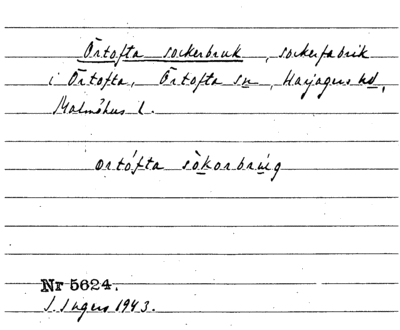 Örtofta sockerbruk, sockerfabrik
i Örtofta, Örtofta sn, Harjagers hd,
Malmöhus l.
ortófta sòkorbrúg
Nr 5624.
I. Ingers 1943.